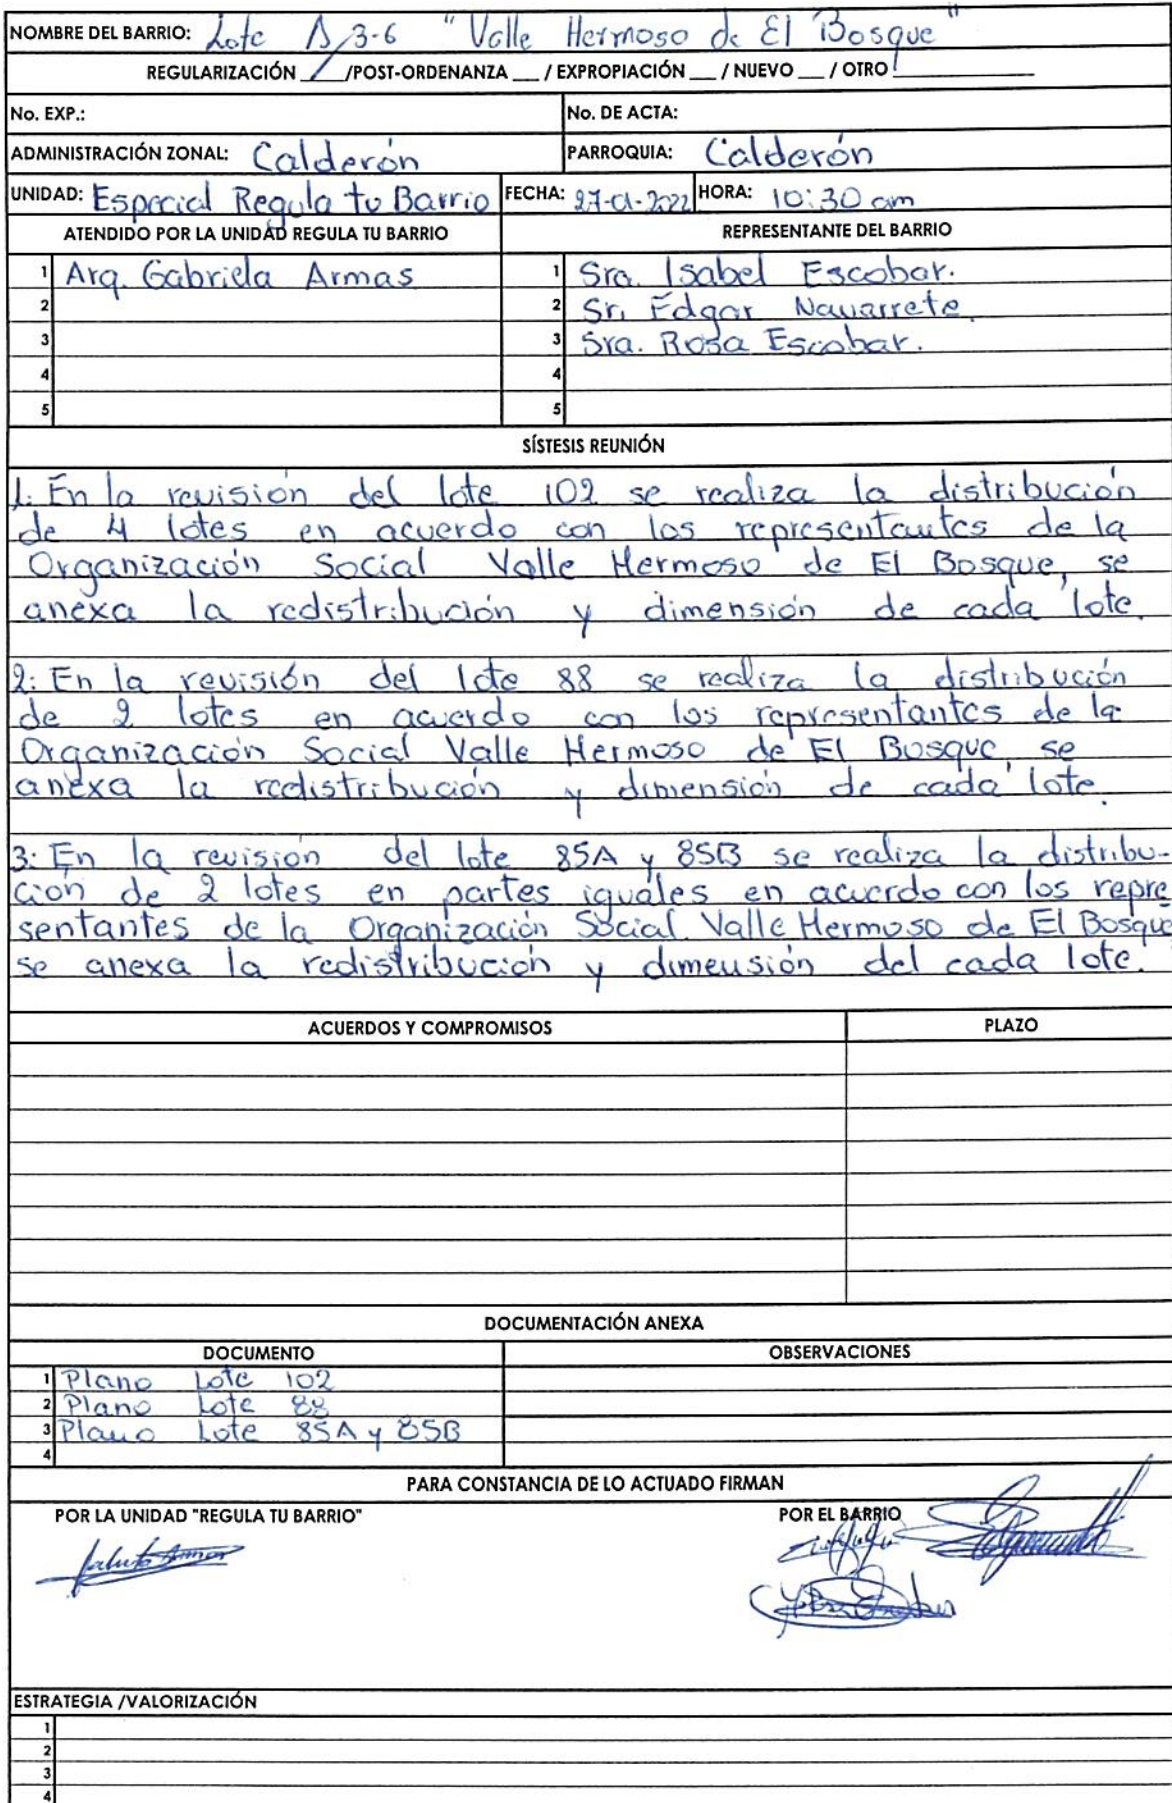 NOMBRE DEL BARRIO: Lote A3-6 "Valle Hermoso de El Bosque"
REGULARIZACIÓN ___/POST-ORDENANZA ___ / EXPROPIACIÓN ___ / NUEVO ___ / OTRO ___
No. EXP.: No. DE ACTA:
ADMINISTRACIÓN ZONAL: Calderón PARROQUIA: Calderón
UNIDAD: Especial Regula tu Barrio FECHA: 27-01-2022 HORA: 10:30 am
ATENDIDO POR LA UNIDAD REGULA TU BARRIO REPRESENTANTE DEL BARRIO
1 Arq. Gabriela Armas 1 Sra. Isabel Escobar.
2 2 Sr. Edgar Navarrete.
3 3 Sra. Rosa Escobar.
4 4
5 5
SÍSTESIS REUNIÓN
1: En la revisión del lote 102 se realiza la distribución
de 4 lotes en acuerdo con los representantes de la
Organización Social Valle Hermoso de El Bosque, se
anexa la redistribución y dimensión de cada lote.
2: En la revisión del lote 88 se realiza la distribución
de 2 lotes en acuerdo con los representantes de la
Organización Social Valle Hermoso de El Bosque, se
anexa la redistribución y dimensión de cada lote.
3: En la revisión del lote 85A y 85B se realiza la distribu-
ción de 2 lotes en partes iguales en acuerdo con los repre
sentantes de la Organización Social Valle Hermoso de El Bosque
se anexa la redistribución y dimensión del cada lote.
ACUERDOS Y COMPROMISOS PLAZO
DOCUMENTACIÓN ANEXA
DOCUMENTO OBSERVACIONES
1 Plano Lote 102
2 Plano Lote 88
3 Plano Lote 85A y 85B
4
PARA CONSTANCIA DE LO ACTUADO FIRMAN
POR LA UNIDAD "REGULA TU BARRIO" POR EL BARRIO
ESTRATEGIA /VALORIZACIÓN
1
2
3
4